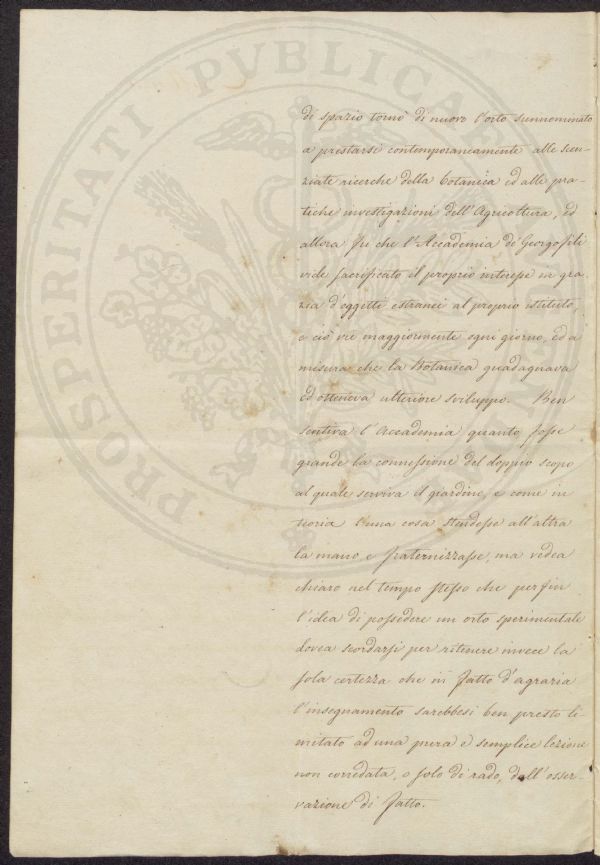 di spazio tornò di nuovo l'orto sunnominato
a prestarsi contemporaneamente alle scen-
ziate ricerche della botanica ed alle pra-
tiche investigazioni dell'Agricoltura, ed
allora fu che l'Accademia de' Georgofili
vide sacrificato il proprio interesse in gra-
zia d'oggetti estranei al proprio istituto,
e ciò vie maggiormente ogni giorno, ed a
misura che la Botanica guadagnava
ed otteneva ulteriore sviluppo. Ben
sentiva l'Accademia quanto fosse
grande la connessione del doppio scopo
al quale serviva il giardino, e come in
teoria l'una cosa stendesse all'altra
la mano e fraternizzasse, ma vedea
chiaro nel tempo stesso che perfin
l'idea di possedere un orto sperimentale
dovea scordarsi per ritenere invece la
sola certezza che in fatto d'agraria
l'insegnamento sarebbesi ben presto li-
mitato ad una pura e semplice lezione
non corredata, o solo di rado, dall'osser-
vazione di fatto.
PROSPERITATI PVBLICAE